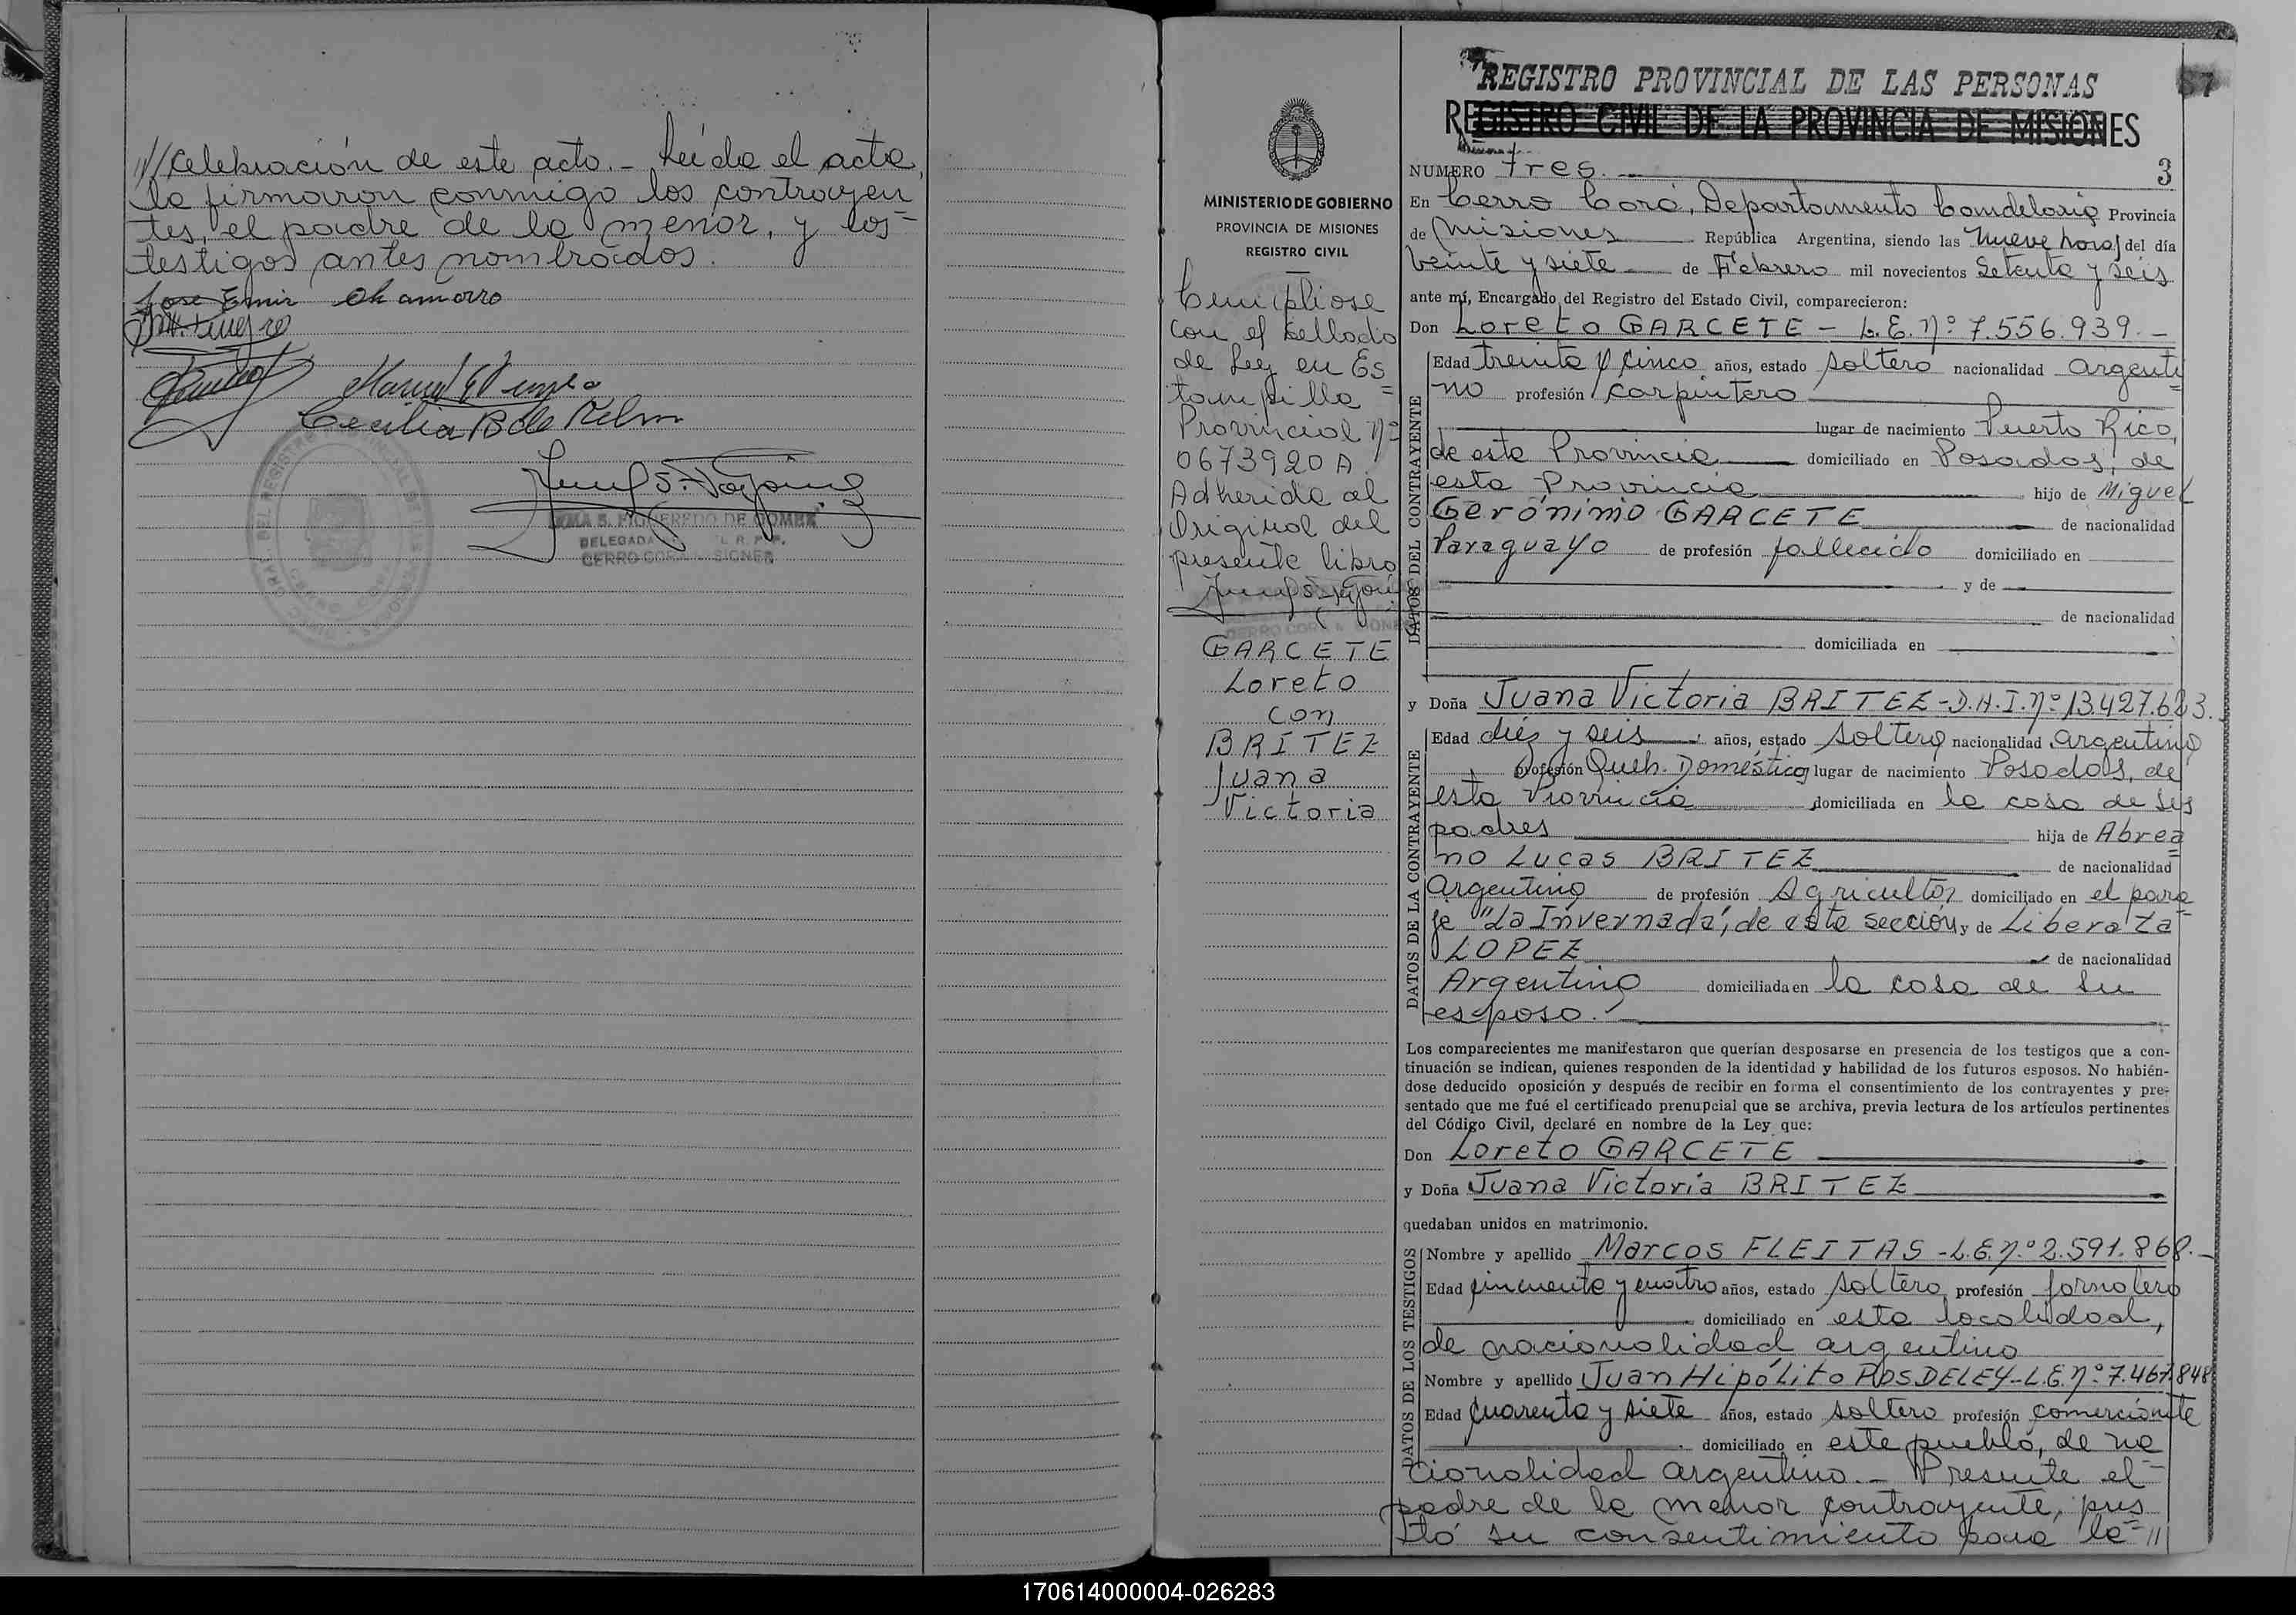 //celebración de este acto.- Leída el acta,
la firmaron conmigo los contrayen=
tes, el padre de la menor, y los
testigos antes nombrados.
Jose Emir Chamorro
Cecilia B de Kelm
CERRO CORA MISIONES
REGISTRO PROVINCIAL DE LAS PERSONAS
REGISTRO CIVIL DE LA PROVINCIA DE MISIONES
MINISTERIO DE GOBIERNO
PROVINCIA DE MISIONES
REGISTRO CIVIL
Cumpliose
con el sellado
de Ley en Es=
tampilla
Provincial Nº
0673920 A.
Adherida al
Original del
presente libro
GARCETE
Loreto
con
BRITEZ
Juana
Victoria
NUMERO tres.-
3
En Cerro Corá, Departamento Candelaria Provincia
de Misiones República Argentina, siendo las nueve horas del día
veinte y siete de Febrero mil novecientos Setenta y seis
ante mí, Encargado del Registro del Estado Civil, comparecieron:
DATOS DEL CONTRAYENTE
Don Loreto GARCETE - L.E. Nº 7.556.939.-
Edad treinta y cinco años, estado soltero nacionalidad argenti=
no profesión carpintero
lugar de nacimiento Puerto Rico,
de esta Provincia domiciliado en Posadas, de
esta Provincia hijo de Miguel
Gerónimo GARCETE de nacionalidad
Paraguayo de profesión fallecido domiciliado en
y de
de nacionalidad
domiciliada en
DATOS DE LA CONTRAYENTE
y Doña Juana Victoria BRITEZ - D.N.I. Nº 13.427.623.
Edad diéz y seis años, estado soltera nacionalidad argentina
profesión Queh. Doméstico lugar de nacimiento Posadas, de
esta Provincia domiciliada en la casa de sus
padres hija de Abrea=
no Lucas BRITEZ de nacionalidad
Argentino de profesión Agricultor domiciliado en el para=
je "La Invernada", de esta sección y de Liberata
LOPEZ de nacionalidad
Argentina domiciliada en la casa de su
esposo.
Los comparecientes me manifestaron que querían desposarse en presencia de los testigos que a con-
tinuación se indican, quienes responden de la identidad y habilidad de los futuros esposos. No habién-
dose deducido oposición y después de recibir en forma el consentimiento de los contrayentes y pre-
sentado que me fué el certificado prenupcial que se archiva, previa lectura de los artículos pertinentes
del Código Civil, declaré en nombre de la Ley que:
Don Loreto GARCETE
y Doña Juana Victoria BRITEZ
quedaban unidos en matrimonio.
DATOS DE LOS TESTIGOS
Nombre y apellido Marcos FLEITAS - L.E. Nº 2.591.868.-
Edad cincuenta y cuatro años, estado soltero profesión jornalero
domiciliado en esta localidad,
de nacionalidad argentino
Nombre y apellido Juan Hipólito ROSDELEY - L.E. Nº 7.467.848
Edad cuarenta y siete años, estado soltero profesión comerciante
domiciliado en este pueblo, de na=
cionalidad argentino.- Presente el
padre de la menor contrayente, pres=
tó su consentimiento para la //
170614000004-026283